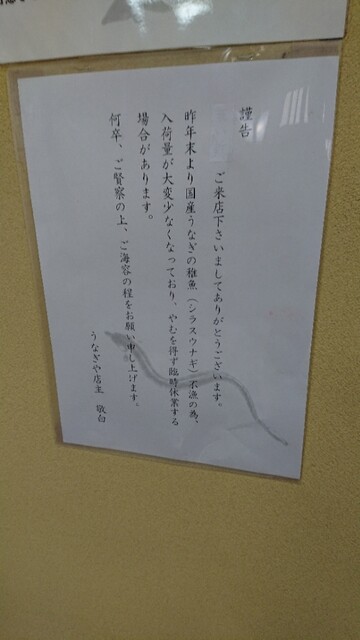 謹告
ご来店下さいましてありがとうございます。
昨年末より国産うなぎの稚魚(シラスウナギ)不漁の為、
入荷量が大変少なくなっており、やむを得ず臨時休業する
場合があります。
何卒、ご賢察の上、ご海容の程をお願い申し上げます。
うなぎや店主 敬白